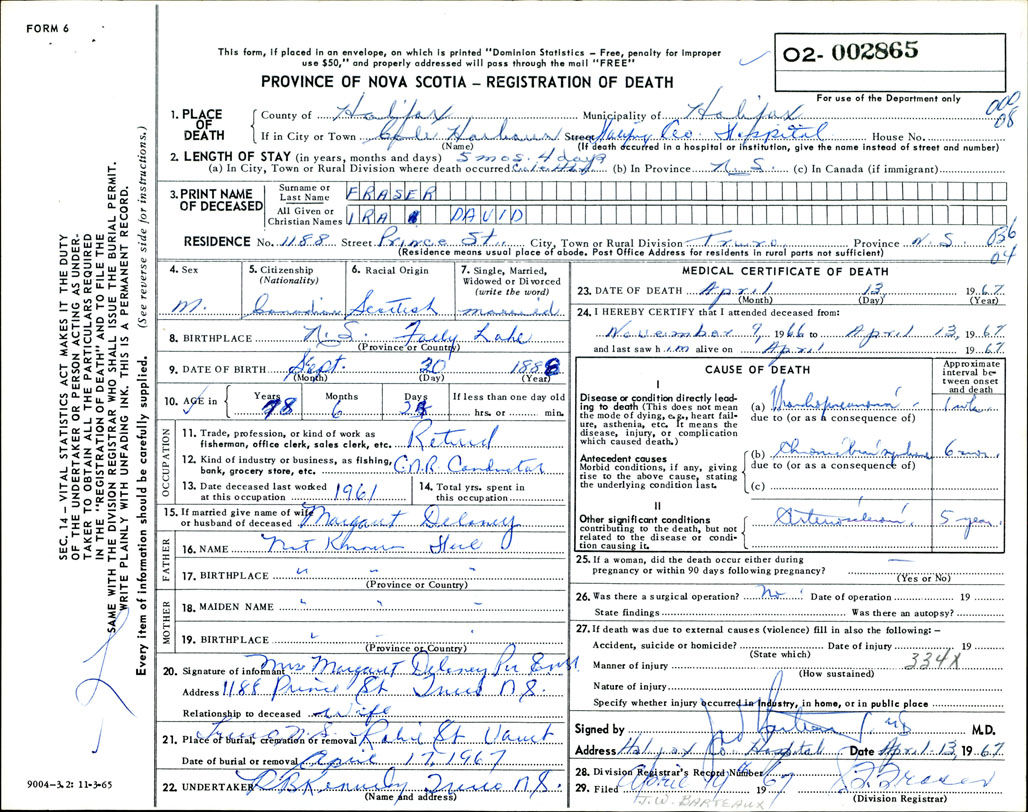 FORM 6
This form, if placed in an envelope, on which is printed "Dominion Statistics – Free, penalty for improper
use $50," and properly addressed will pass through the mail "FREE"
O2- 002865
PROVINCE OF NOVA SCOTIA – REGISTRATION OF DEATH
For use of the Department only
000
08
1. PLACE OF DEATH
County of Halifax Municipality of Halifax
If in City or Town Cole Harbour Street Halifax Co. Hospital House No.
(Name) (If death occurred in a hospital or institution, give the name instead of street and number)
2. LENGTH OF STAY (in years, months and days) 5 mos. 4 days
(a) In City, Town or Rural Division where death occurred (b) In Province N.S. (c) In Canada (if immigrant)
3. PRINT NAME OF DECEASED
Surname or Last Name FRASER
All Given or Christian Names IRA DAVID
RESIDENCE No. 1188 Street Prince St. City, Town or Rural Division Truro Province N.S.
(Residence means usual place of abode. Post Office Address for residents in rural parts not sufficient)
04
4. Sex M.
5. Citizenship (Nationality) Canadian
6. Racial Origin Scottish
7. Single, Married, Widowed or Divorced (write the word) married
8. BIRTHPLACE N.S. Folly Lake
(Province or Country)
9. DATE OF BIRTH Sept. 20 1888
(Month) (Day) (Year)
10. AGE in Years 78 Months 6 Days If less than one day old hrs. or min.
OCCUPATION
11. Trade, profession, or kind of work as fisherman, office clerk, sales clerk, etc. Retired
12. Kind of industry or business, as fishing, bank, grocery store, etc. C.N.R. Conductor
13. Date deceased last worked at this occupation 1961
14. Total yrs. spent in this occupation
15. If married give name of wife or husband of deceased Margaret Delaney
FATHER
16. NAME Not Known
17. BIRTHPLACE " " "
(Province or Country)
MOTHER
18. MAIDEN NAME " " "
19. BIRTHPLACE " " "
(Province or Country)
20. Signature of informant Mrs Margaret Delaney Per
Address 1188 Prince St Truro N.S.
Relationship to deceased Wife
21. Place of burial, cremation or removal Truro N.S. Robie St Vault
Date of burial or removal April 17, 1967
22. UNDERTAKER Truro N.S.
(Name and address)
MEDICAL CERTIFICATE OF DEATH
23. DATE OF DEATH April 13 1967
(Month) (Day) (Year)
24. I HEREBY CERTIFY that I attended deceased from:
November 9, 1966 to April 13, 1967
and last saw him alive on April 1967.
CAUSE OF DEATH
Approximate interval between onset and death
I
Disease or condition directly leading to death (This does not mean the mode of dying, e.g., heart failure, asthenia, etc. It means the disease, injury, or complication which caused death.)
(a) Bronchopneumonia 1 wk.
due to (or as a consequence of)
Antecedent causes
Morbid conditions, if any, giving rise to the above cause, stating the underlying condition last.
(b) Chronic brain syndrome 6 mos.
due to (or as a consequence of)
(c)
II
Other significant conditions contributing to the death, but not related to the disease or condition causing it.
Arteriosclerosis 5 years
25. If a woman, did the death occur either during pregnancy or within 90 days following pregnancy? —
(Yes or No)
26. Was there a surgical operation? No Date of operation 19
State findings Was there an autopsy?
27. If death was due to external causes (violence) fill in also the following: –
Accident, suicide or homicide? Date of injury 19
(State which)
334X
Manner of injury
(How sustained)
Nature of injury
Specify whether injury occurred in industry, in home, or in public place
Signed by M.D.
Address Halifax Co Hospital Date April 13, 1967
28. Division Registrar's Record Number
29. Filed April 19 1967
J.W. BARTEAUX
(Division Registrar)
SEC. 14 – VITAL STATISTICS ACT MAKES IT THE DUTY
OF THE UNDERTAKER OR PERSON ACTING AS UNDER-
TAKER TO OBTAIN ALL THE PARTICULARS REQUIRED
IN THE "REGISTRATION OF DEATH" AND TO FILE THE
SAME WITH THE DIVISION REGISTRAR WHO SHALL ISSUE THE BURIAL PERMIT.
WRITE PLAINLY WITH UNFADING INK. THIS IS A PERMANENT RECORD.
Every item of information should be carefully supplied. (See reverse side for instructions.)
9004-3.2: 11-3-65